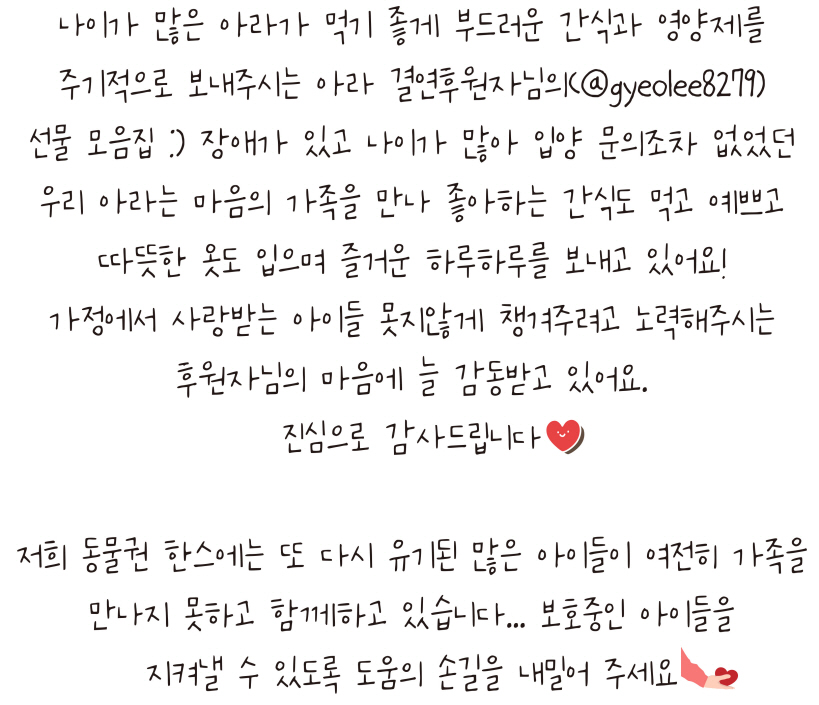 나이가 많은 아라가 먹기 좋게 부드러운 간식과 영양제를
주기적으로 보내주시는 아라 결연후원자님의(@gyeolee8279)
선물 모음집 :) 장애가 있고 나이가 많아 입양 문의조차 없었던
우리 아라는 마음의 가족을 만나 좋아하는 간식도 먹고 예쁘고
따뜻한 옷도 입으며 즐거운 하루하루를 보내고 있어요!
가정에서 사랑받는 아이들 못지않게 챙겨주려고 노력해주시는
후원자님의 마음에 늘 감동받고 있어요.
진심으로 감사드립니다
저희 동물권 한스에는 또 다시 유기된 많은 아이들이 여전히 가족을
만나지 못하고 함께하고 있습니다... 보호중인 아이들을
지켜낼 수 있도록 도움의 손길을 내밀어 주세요